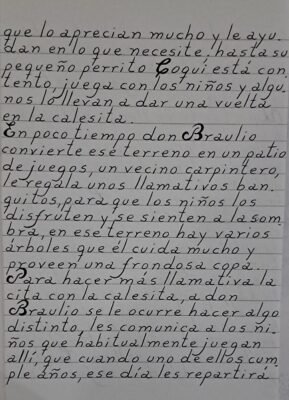 que lo aprecian mucho y le ayu-
dan en lo que necesite. hasta su
pequeño perrito Coquí está con-
tento, juega con los niños y algu-
nos lo llevan a dar una vuelta
en la calesita.
En poco tiempo don Braulio
convierte ese terreno en un patio
de juegos, un vecino carpintero,
le regala unos llamativos ban-
quitos, para que los niños los
disfruten y se sienten a la som-
bra, en ese terreno hay varios
árboles que él cuida mucho y
proveen una frondosa copa.
Para hacer más llamativa la
cita con la calesita, a don
Braulio se le ocurre hacer algo
distinto, les comunica a los ni-
ños que habitualmente juegan
allí, que cuando uno de ellos cum-
ple años, ese día les repartirá